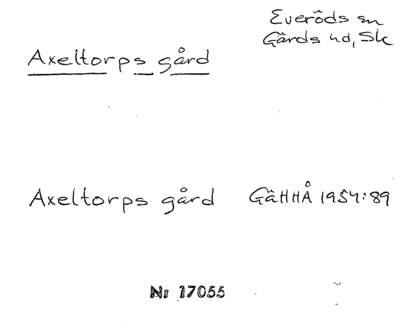 Everöds sn
Gärds hd, Sk
Axeltorps gård
Axeltorps gård GäHHÅ 1954:89
Nr 17055